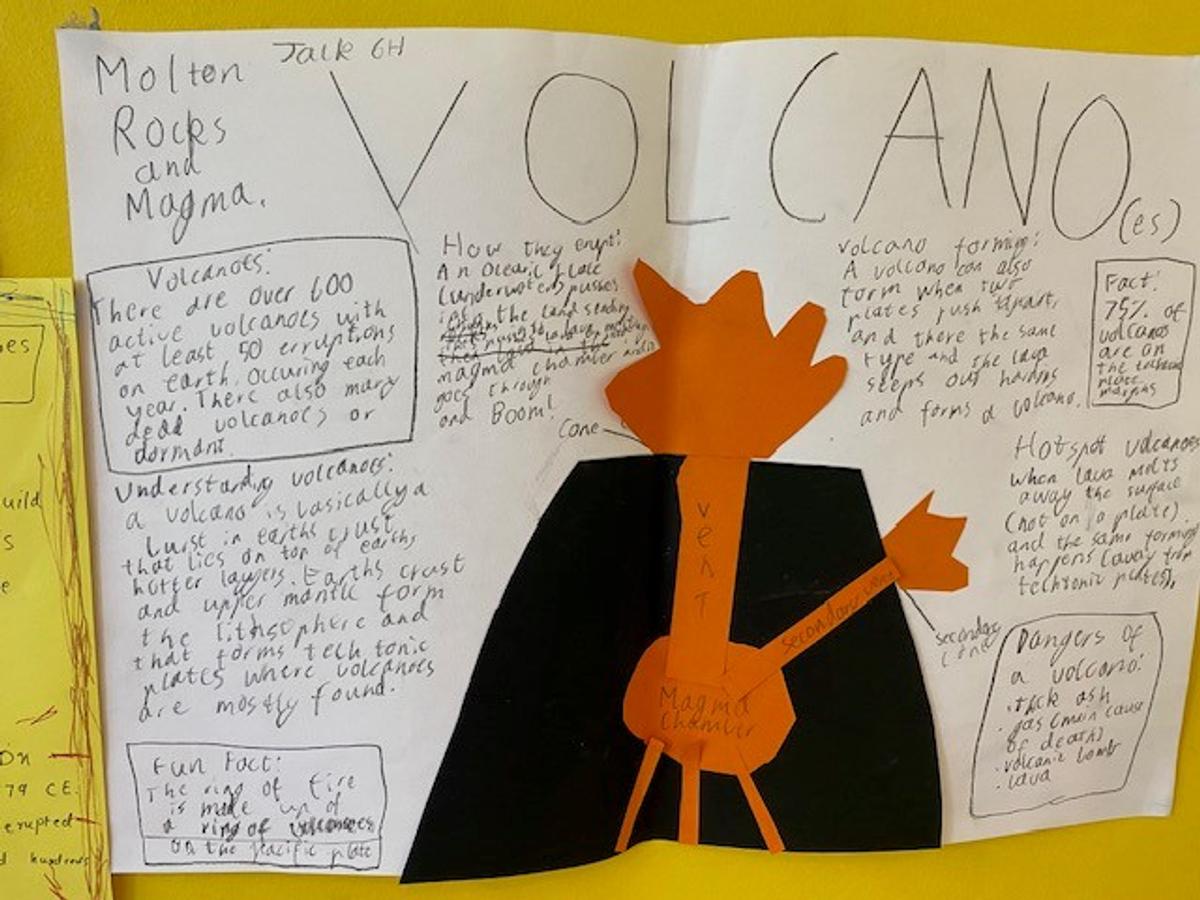 Molten
Rocks
and
Magma.
Jack 6H
VOLCANO(es)
Volcanoes:
There are over 600
active volcanoes with
at least 50 erruptions
on earth, occuring each
year. There also many
dead volcanoes or
dormant.
Understanding volcanoes:
a volcano is basically a
burst in earths crust
that lies on top of earths
hotter layers. Earths crust
and upper mantle form
the lithsophere and
that forms tech tonic
plates where volcanoes
are mostly found.
Fun Fact:
The ring of fire
is made up of
a ring of volcanoes
on the pacific plate
How they erupt:
An Oceanic plate
(underwater) pusses
into the land sending
magma chamber
goes through
and Boom!
Cone
vent
Magma
chamber
secondary
secondary
cone
volcano forming:
A volcano can also
form when two
plates push apart,
and there the same
type and the lava
seeps out hardns
and forms a volcano.
Fact:
75% of
volcanos
are on
the
plate
margins
Hotspot volcanoes
when lava melts
away the surface
(not on a plate)
and the same forming
happens (away from
techronic plates),
Dangers of
a volcano:
. thck ash
. gas (main cause
of death)
. volcanic bomb
. lava
uild
s
e
on
79 CE.
erupted
d hundreds